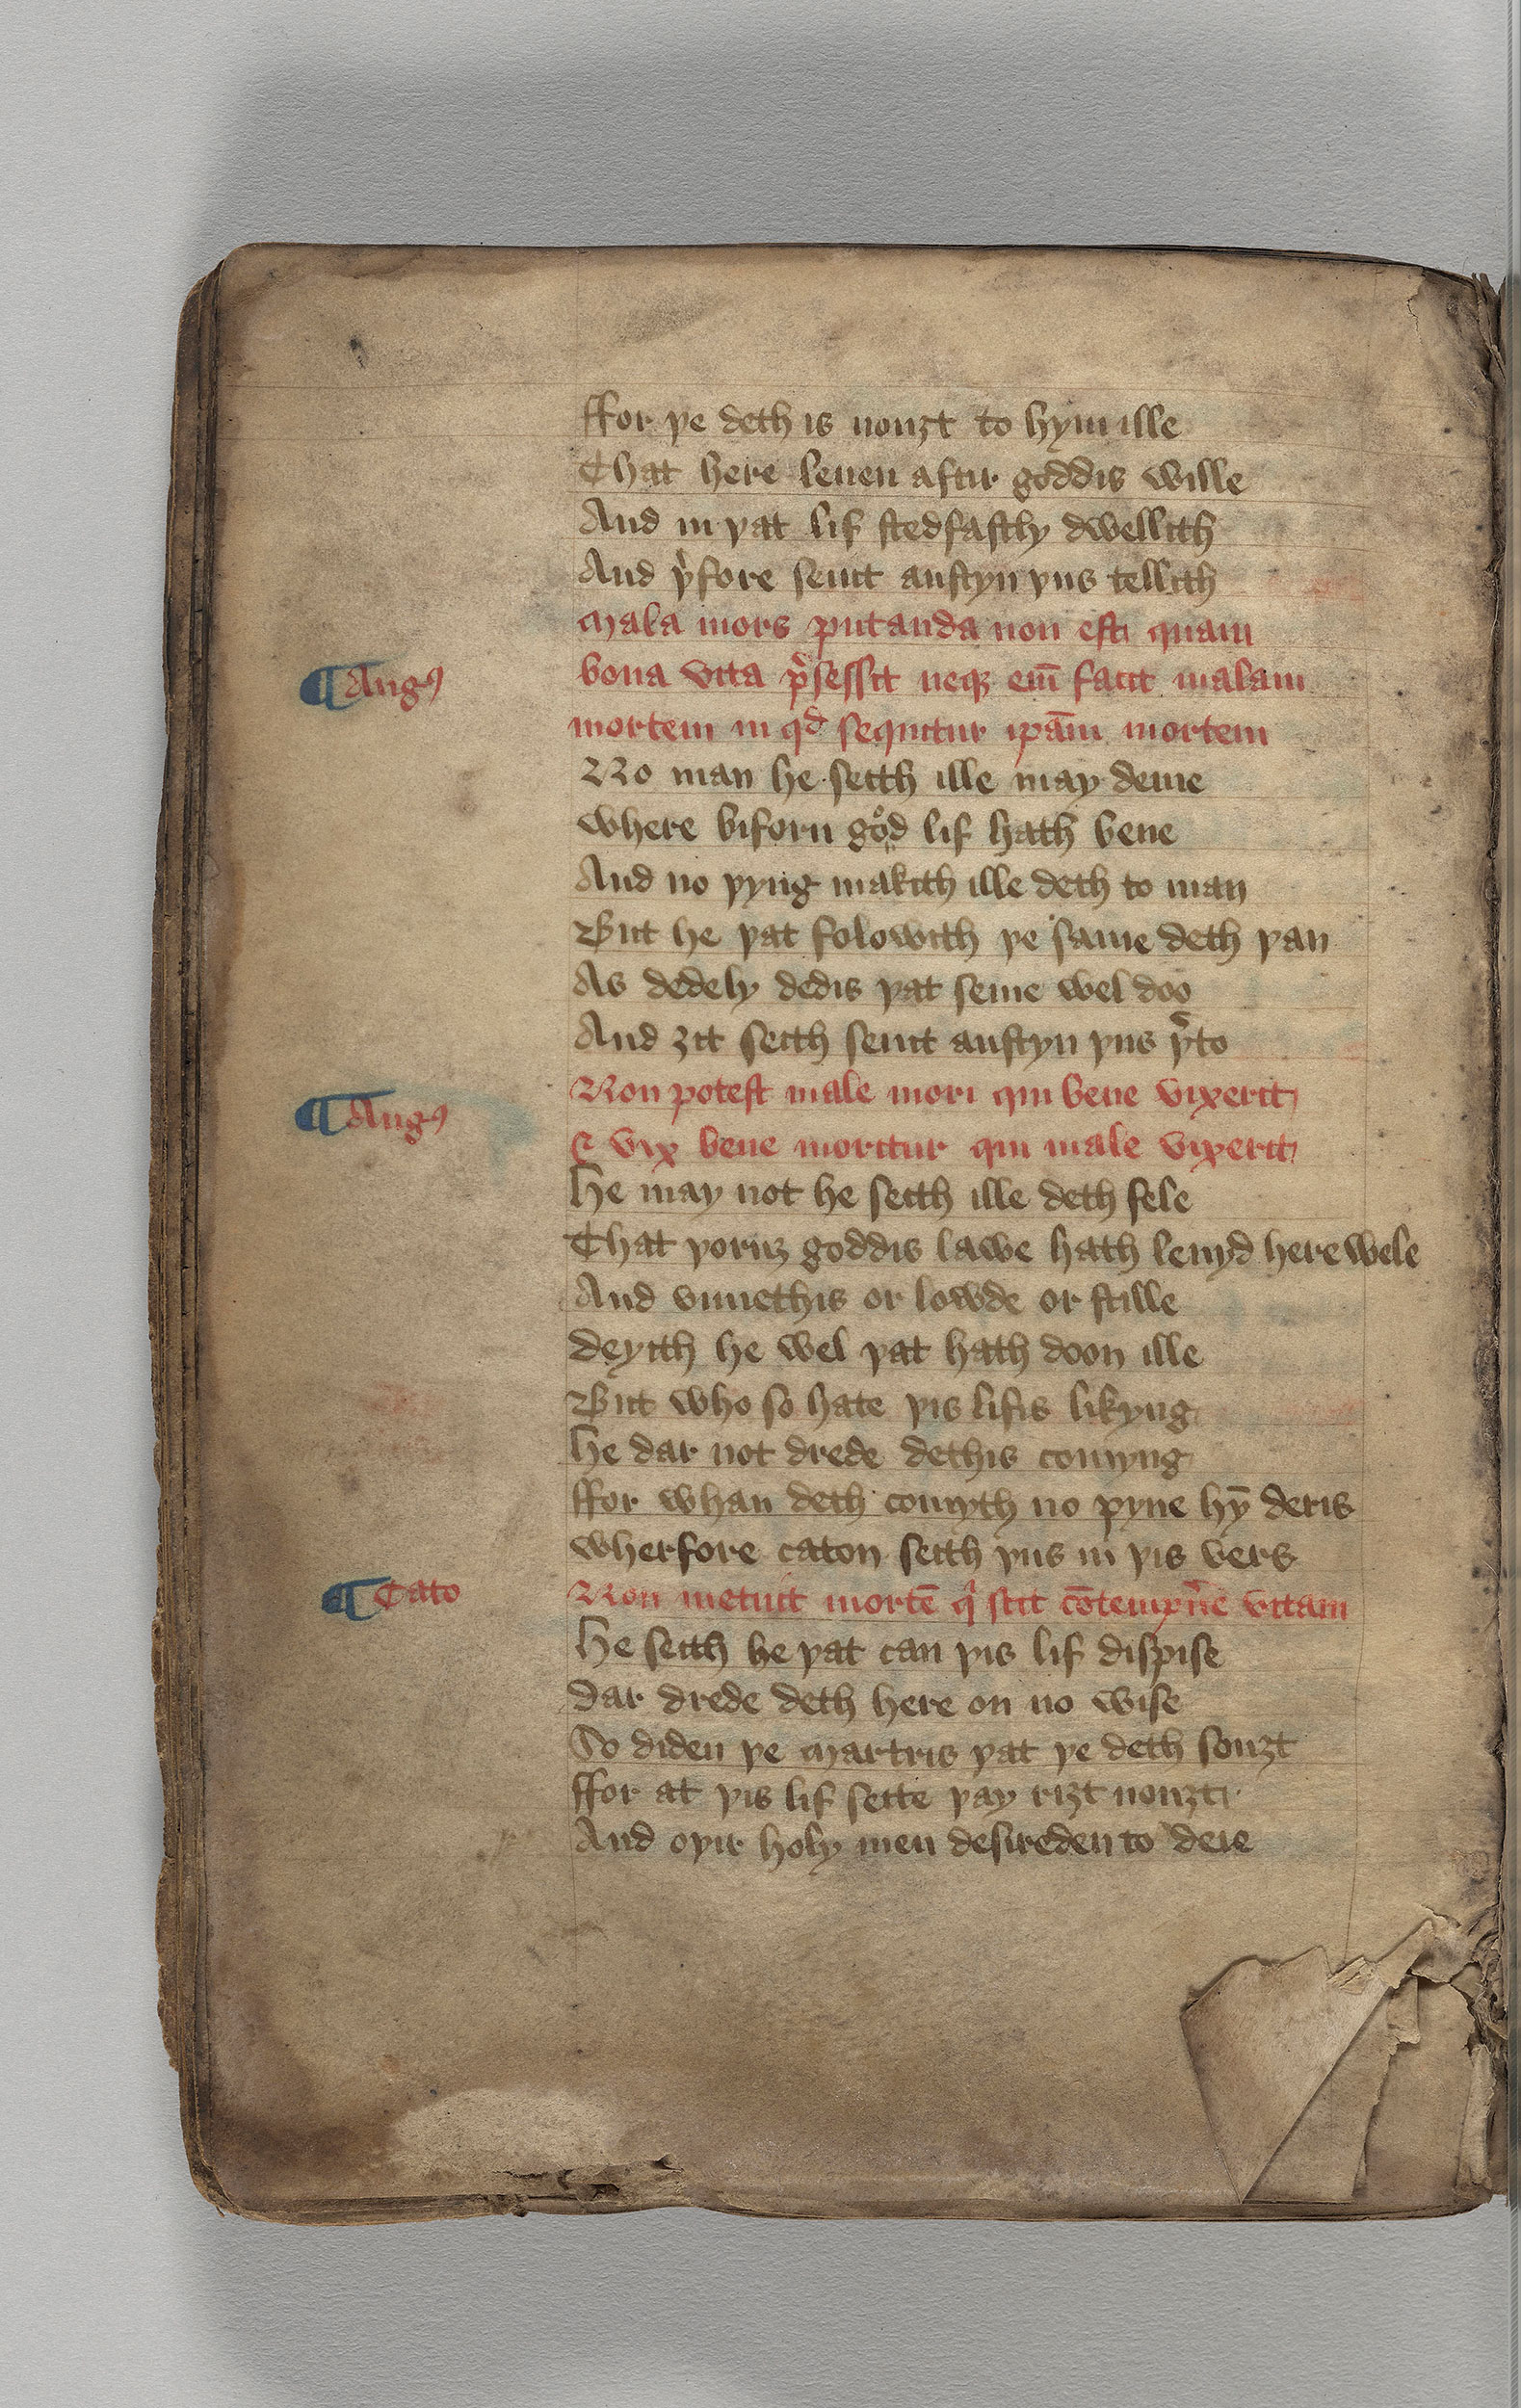 ffor þe deth is nouȝt to hym ille
That here leuen aftir goddis wille
And in þat lif stedfastly dwellith
And þ'fore seint austyn þus tellith
Mala mors putanda non est quam
¶ Augꝰ
bona vita p̄sessit neqȝ em̄ facit malam
mortem ni qd sequitur ip̄am mortem
No man he seith ille may deme
where biforn god lif hath bene
And no þyng makith ille deth to man
But he þat folowith þe same deth þan
As dedely dedis þat seme wel doo
And ȝit seith seint austyn þus þ'to
¶ Augꝰ
Non potest male mori qui bene vixerit
⁊ vix bene moritur qui male vixerit
He may not he seith ille deth fele
That þoruȝ goddis lawe hath leuyd here wele
And vnnethis or lowde or stille
deyith he wel þat hath doon ille
But who so hate þis lifis likyng
He dar not drede dethis comyng
ffor whan deth comyth no pyne hȳ deris
wherfore caton seith þus in þis vers
¶ Cato
Non metuit mortē qͥ scit cōtempn'e vitam
He seith he þat can þis lif dispise
Dar drede deth here on no wise
So diden þe martris þat þe deth souȝt
ffor at þis lif sette þay riȝt nouȝt
And oþir holy men desireden to deie